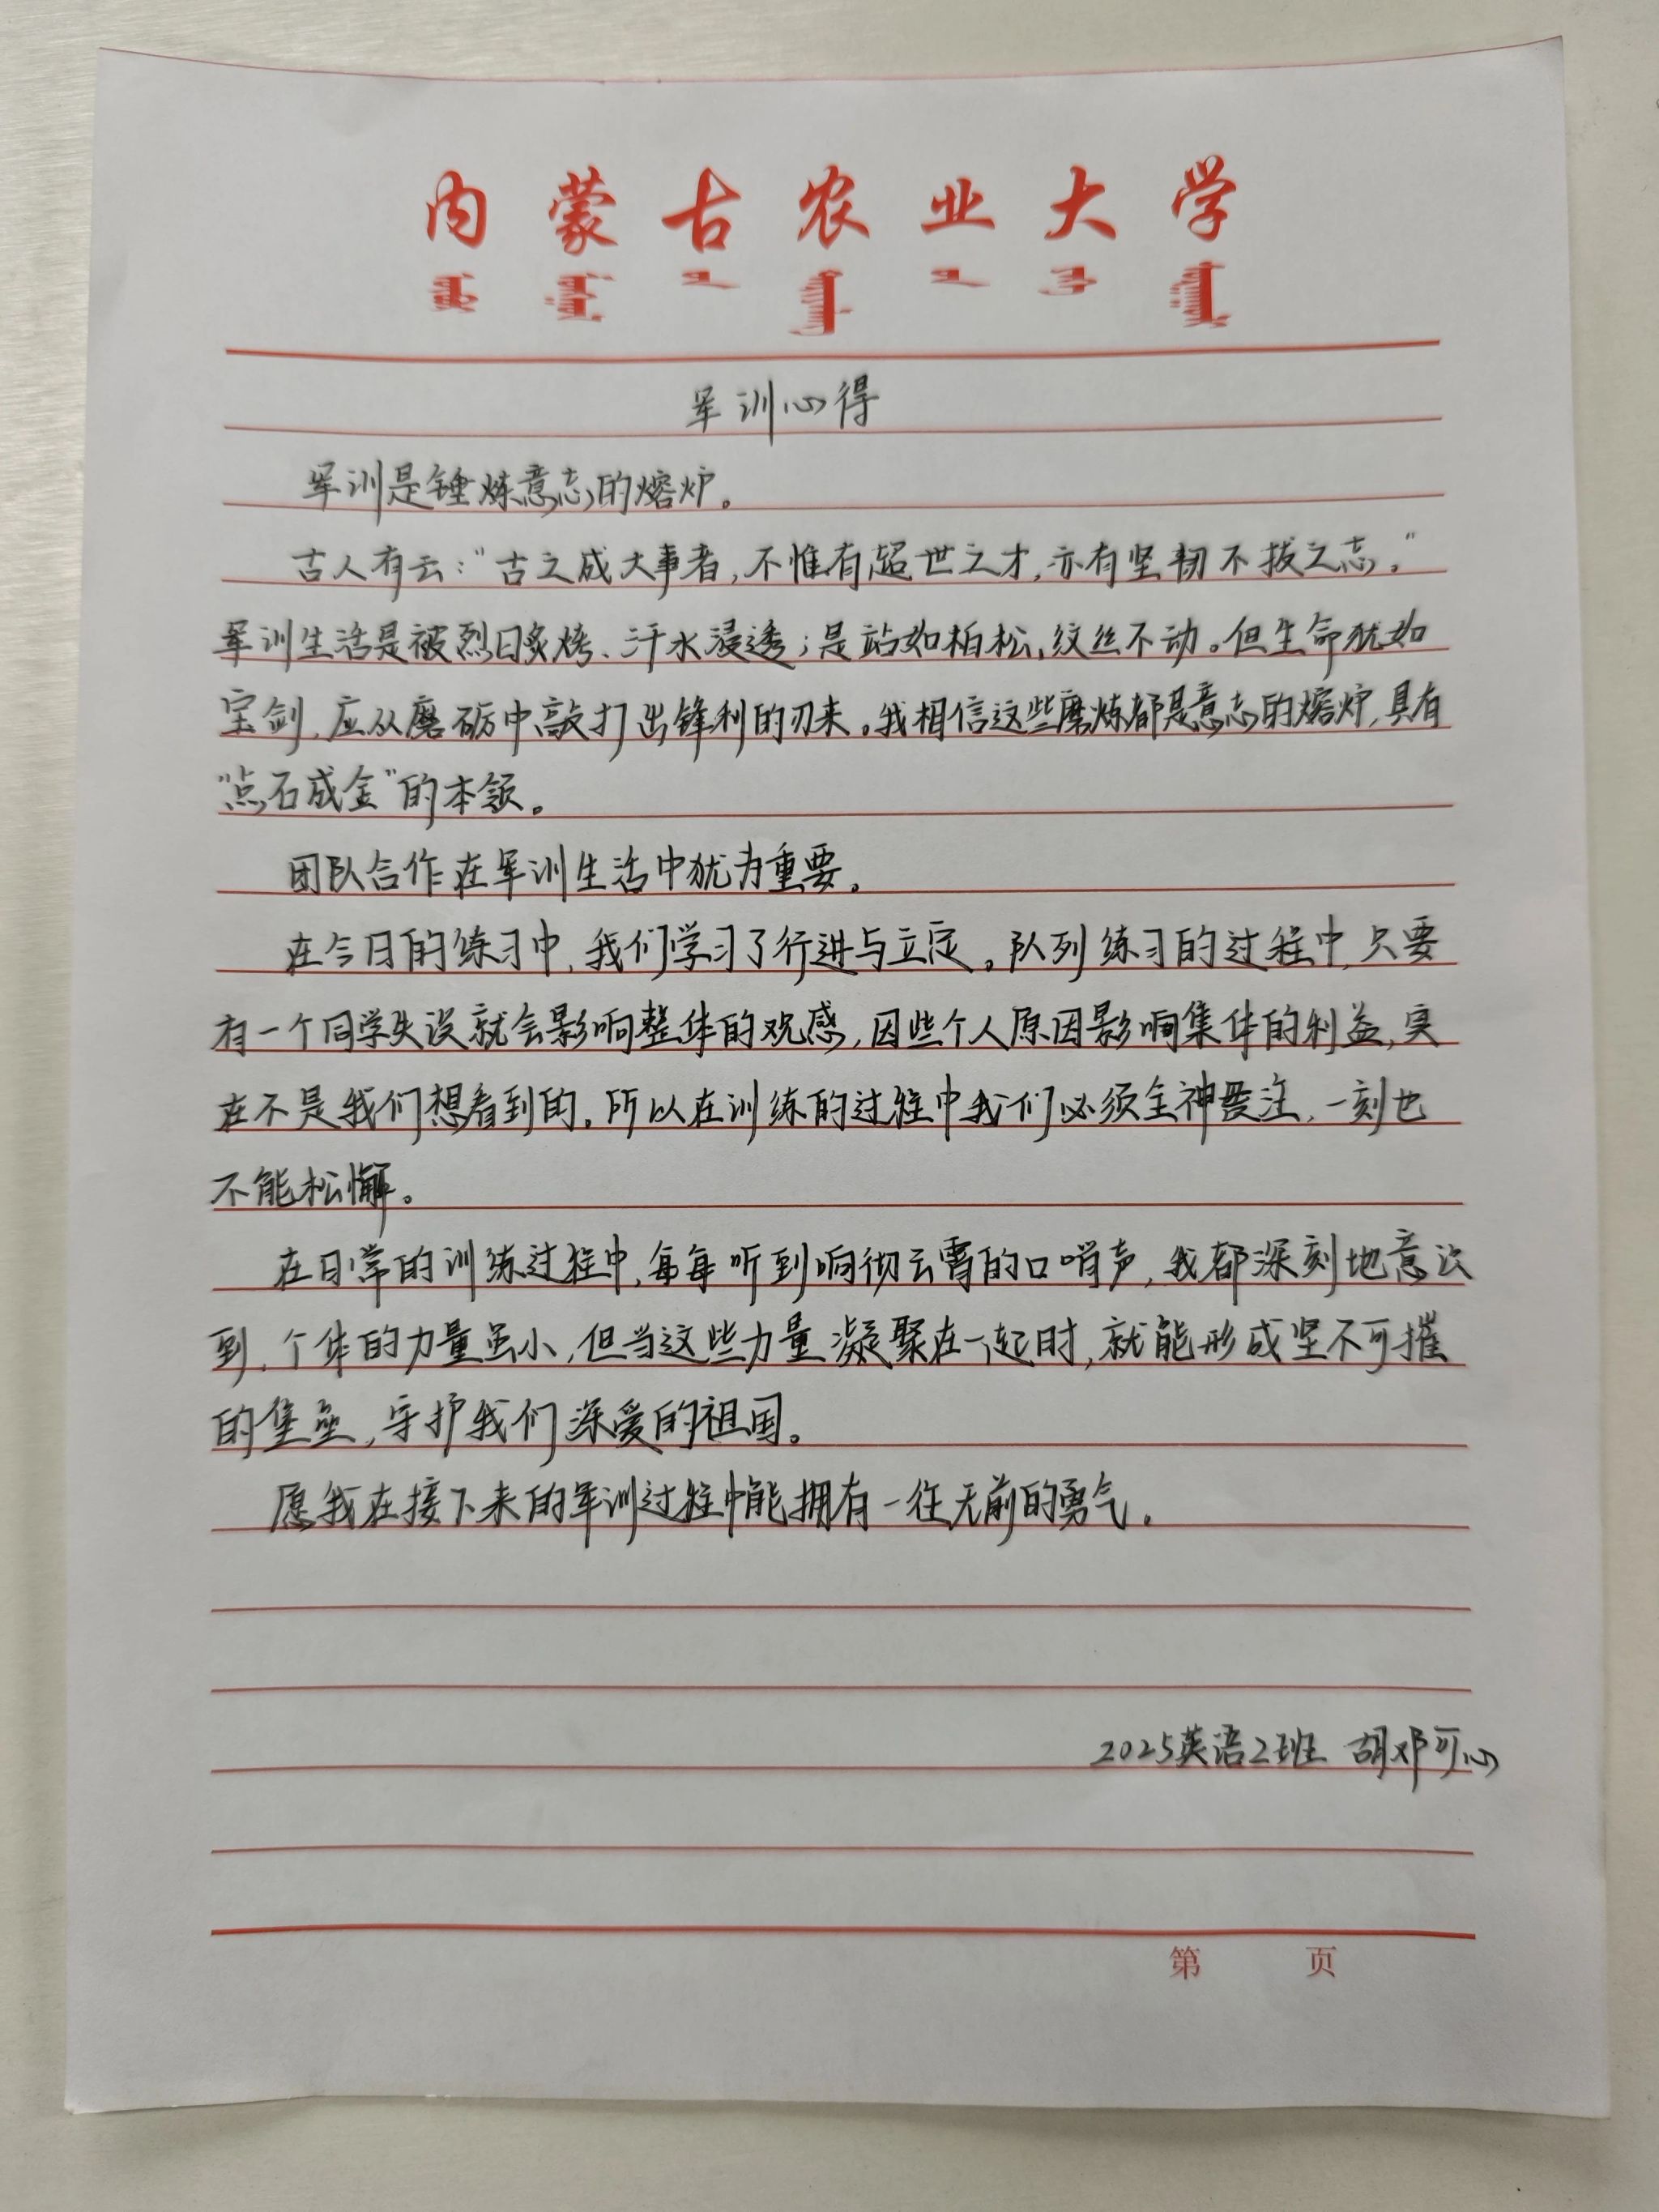 内蒙古农业大学
军训心得
军训是锤炼意志的熔炉。
古人有云：“古之成大事者，不惟有超世之才，亦有坚韧不拔之志。”
军训生活是被烈日炙烤、汗水浸透；是站如柏松，纹丝不动。但生命犹如
宝剑，应从磨砺中敲打出锋利的刃来。我相信这些磨炼都是意志的熔炉，具有
“点石成金”的本领。
团队合作在军训生活中犹为重要。
在今日的练习中，我们学习了行进与立定。队列练习的过程中，只要
有一个同学失误就会影响整体的观感，因些个人原因影响集体的利益，实
在不是我们想看到的。所以在训练的过程中我们必须全神贯注，一刻也
不能松懈。
在日常的训练过程中，每每听到响彻云霄的口哨声，我都深刻地意识
到，个体的力量虽小，但当这些力量凝聚在一起时，就能形成坚不可摧
的堡垒，守护我们深爱的祖国。
愿我在接下来的军训过程中能拥有一往无前的勇气。
2025英语2班 胡邓可心
第 页